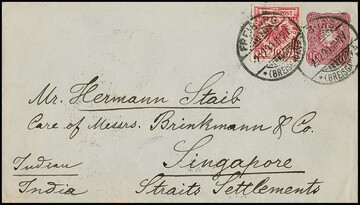 FREIBURG
(BREISGAU)
(BREISGAU)
Mr. Hermann Staib
Care of Messrs. Brinkmann & Co.
Singapore
Indian
India Straits Settlements